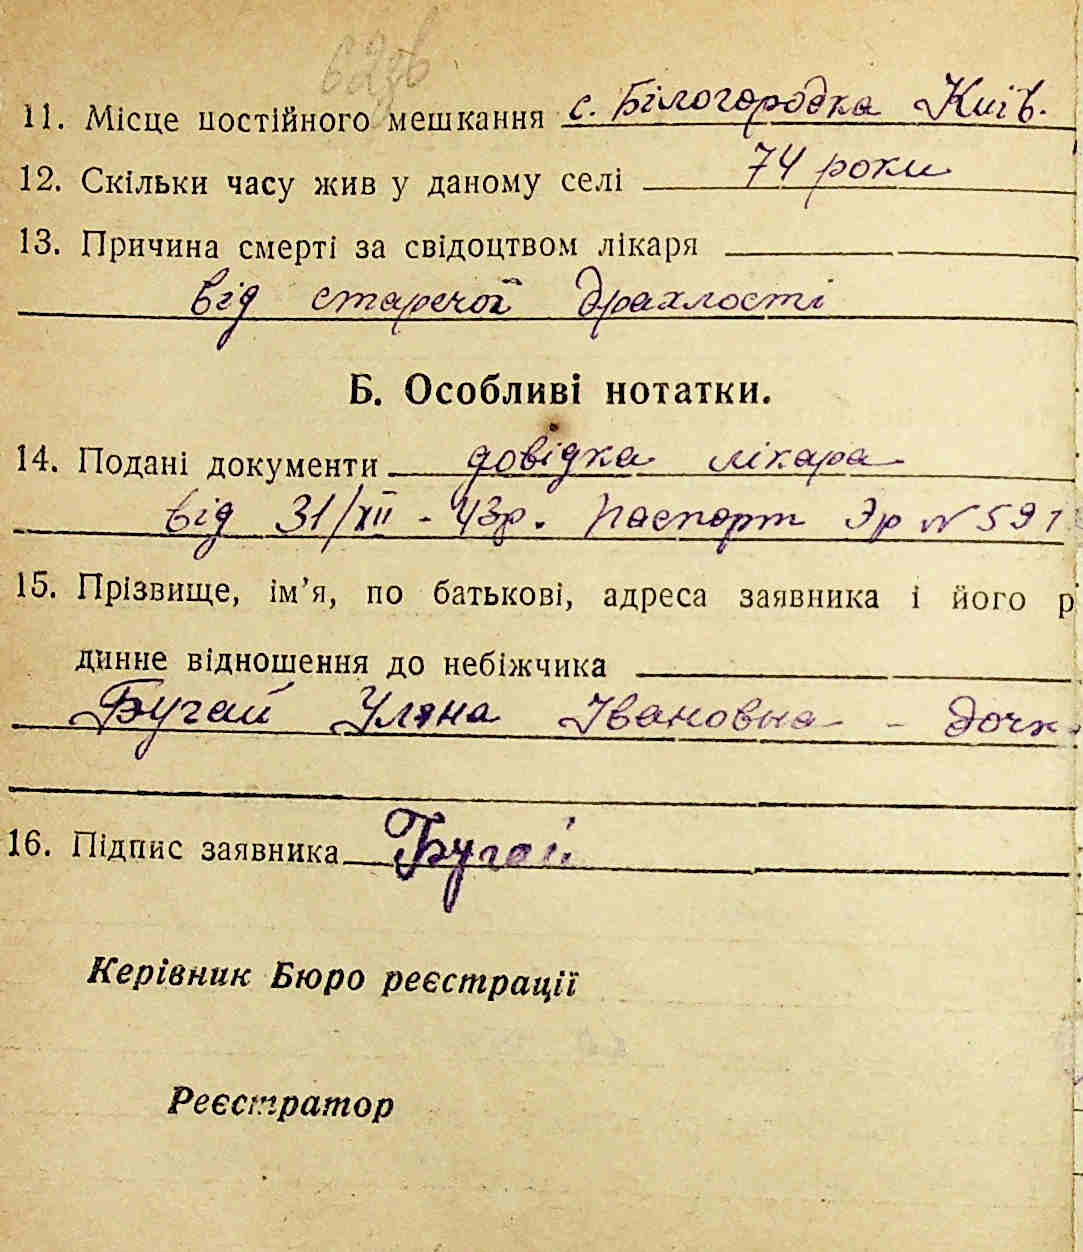 11. Місце постійного мешкання с. Білогородка Київ.
12. Скільки часу жив у даному селі 74 роки
13. Причина смерті за свідоцтвом лікаря
від старечої драхлості
Б. Особливі нотатки.
14. Подані документи довідка лікара
від 31/XII - 43р. паспорт Эр № 591
15. Прізвище, ім’я, по батькові, адреса заявника і його р
динне відношення до небіжчика
Бугай Уляна Івановна - дочк
16. Підпис заявника Бугай
Керівник Бюро реєстрації
Реєстратор